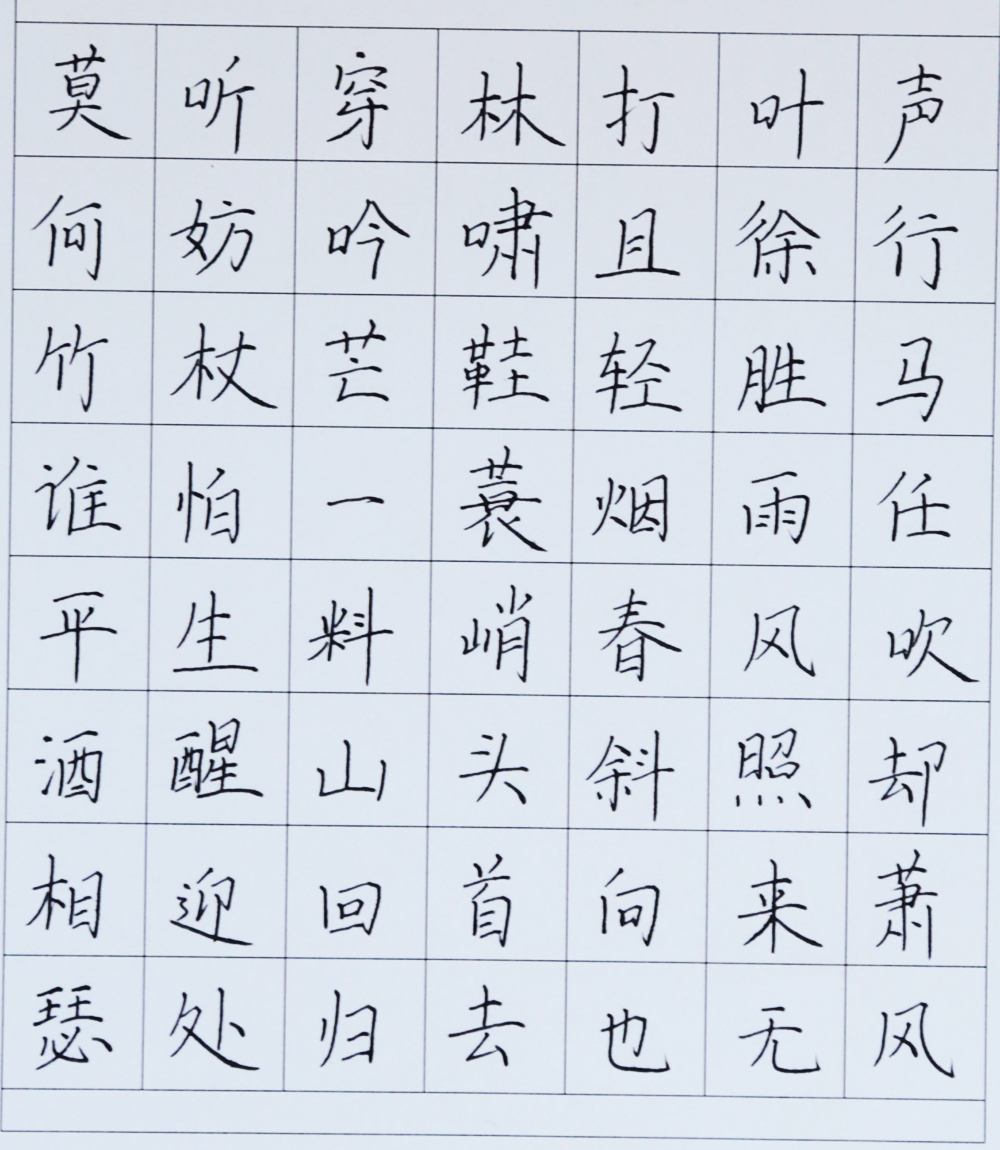 莫听穿林打叶声
何妨吟啸且徐行
竹杖芒鞋轻胜马
谁怕一蓑烟雨任
平生料峭春风吹
酒醒山头斜照却
相迎回首向来萧
瑟处归去也无风